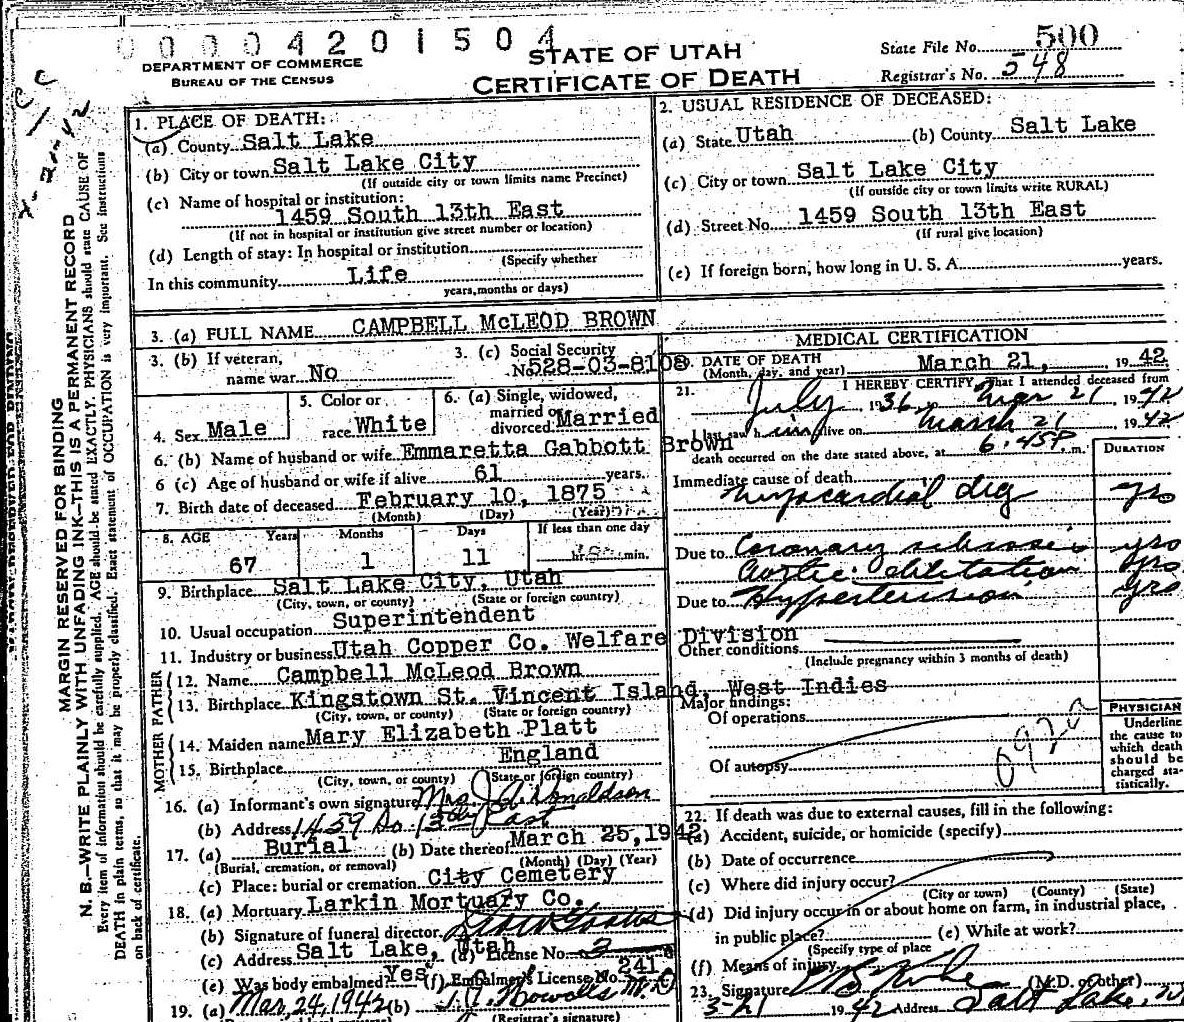 0000420 1504
DEPARTMENT OF COMMERCE
BUREAU OF THE CENSUS
STATE OF UTAH
CERTIFICATE OF DEATH
State File No. 500
Registrar's No. 548
MARGIN RESERVED FOR BINDING
N. B.—WRITE PLAINLY WITH UNFADING INK—THIS IS A PERMANENT RECORD
Every item of information should be carefully supplied. AGE should be stated EXACTLY. PHYSICIANS should state CAUSE OF
DEATH in plain terms, so that it may be properly classified. Exact statement of OCCUPATION is very important. See instructions
on back of certificate.
1. PLACE OF DEATH:
(a) County Salt Lake
(b) City or town Salt Lake City
(If outside city or town limits name Precinct)
(c) Name of hospital or institution:
1459 South 13th East
(If not in hospital or institution give street number or location)
(d) Length of stay: In hospital or institution
(Specify whether
In this community Life
years, months or days)
2. USUAL RESIDENCE OF DECEASED:
(a) State Utah (b) County Salt Lake
(c) City or town Salt Lake City
(If outside city or town limits write RURAL)
(d) Street No. 1459 South 13th East
(If rural give location)
(e) If foreign born, how long in U. S. A. years.
3. (a) FULL NAME CAMPBELL McLEOD BROWN
3. (b) If veteran,
name war No
3. (c) Social Security
No. 528-03-8108
4. Sex Male
5. Color or
race White
6. (a) Single, widowed,
married or
divorced Married
6. (b) Name of husband or wife Emmaretta Gabbott Brown
6 (c) Age of husband or wife if alive 61 years.
7. Birth date of deceased February 10, 1875
(Month) (Day) (Year)
8. AGE Years Months Days If less than one day
67 1 11 hr. min.
9. Birthplace Salt Lake City, Utah
(City, town, or county) (State or foreign country)
10. Usual occupation Superintendent
11. Industry or business Utah Copper Co. Welfare Division
FATHER
12. Name Campbell McLeod Brown
13. Birthplace Kingstown St. Vincent Island, West Indies
(City, town, or county) (State or foreign country)
MOTHER
14. Maiden name Mary Elizabeth Platt
15. Birthplace England
(City, town, or county) (State or foreign country)
16. (a) Informant's own signature Mrs. J. A. Donaldson
(b) Address 1459 So. 13th East
17. (a) Burial (b) Date thereof March 25, 1942
(Burial, cremation, or removal) (Month) (Day) (Year)
(c) Place: burial or cremation City Cemetery
18. (a) Mortuary Larkin Mortuary Co.
(b) Signature of funeral director
(c) Address Salt Lake, Utah (d) License No. 3
(e) Was body embalmed? Yes (f) Embalmer's License No. 241
19. (a) Mar, 24, 1942 (b) M.D.
(Registrar's signature)
MEDICAL CERTIFICATION
DATE OF DEATH March 21, 1942
(Month, day, and year)
21. I HEREBY CERTIFY, That I attended deceased from
July 1936 to Mar 21, 1942
I last saw him alive on March 21 1942
death occurred on the date stated above, at 6.45P. m.
DURATION
Immediate cause of death
Myocardial deg yrs
Due to Coronary sclerosis yrs
Aortic dilitation yrs
Due to Hypertension yrs
Other conditions
(Include pregnancy within 3 months of death)
Major findings:
Of operations
Of autopsy
PHYSICIAN
Underline
the cause to
which death
should be
charged sta-
tistically.
22. If death was due to external causes, fill in the following:
(a) Accident, suicide, or homicide (specify)
(b) Date of occurrence
(c) Where did injury occur?
(City or town) (County) (State)
(d) Did injury occur in or about home on farm, in industrial place,
in public place? (e) While at work?
(Specify type of place
(f) Means of injury
23. Signature (M.D. or other)
3-21 1942 Address Salt Lake,